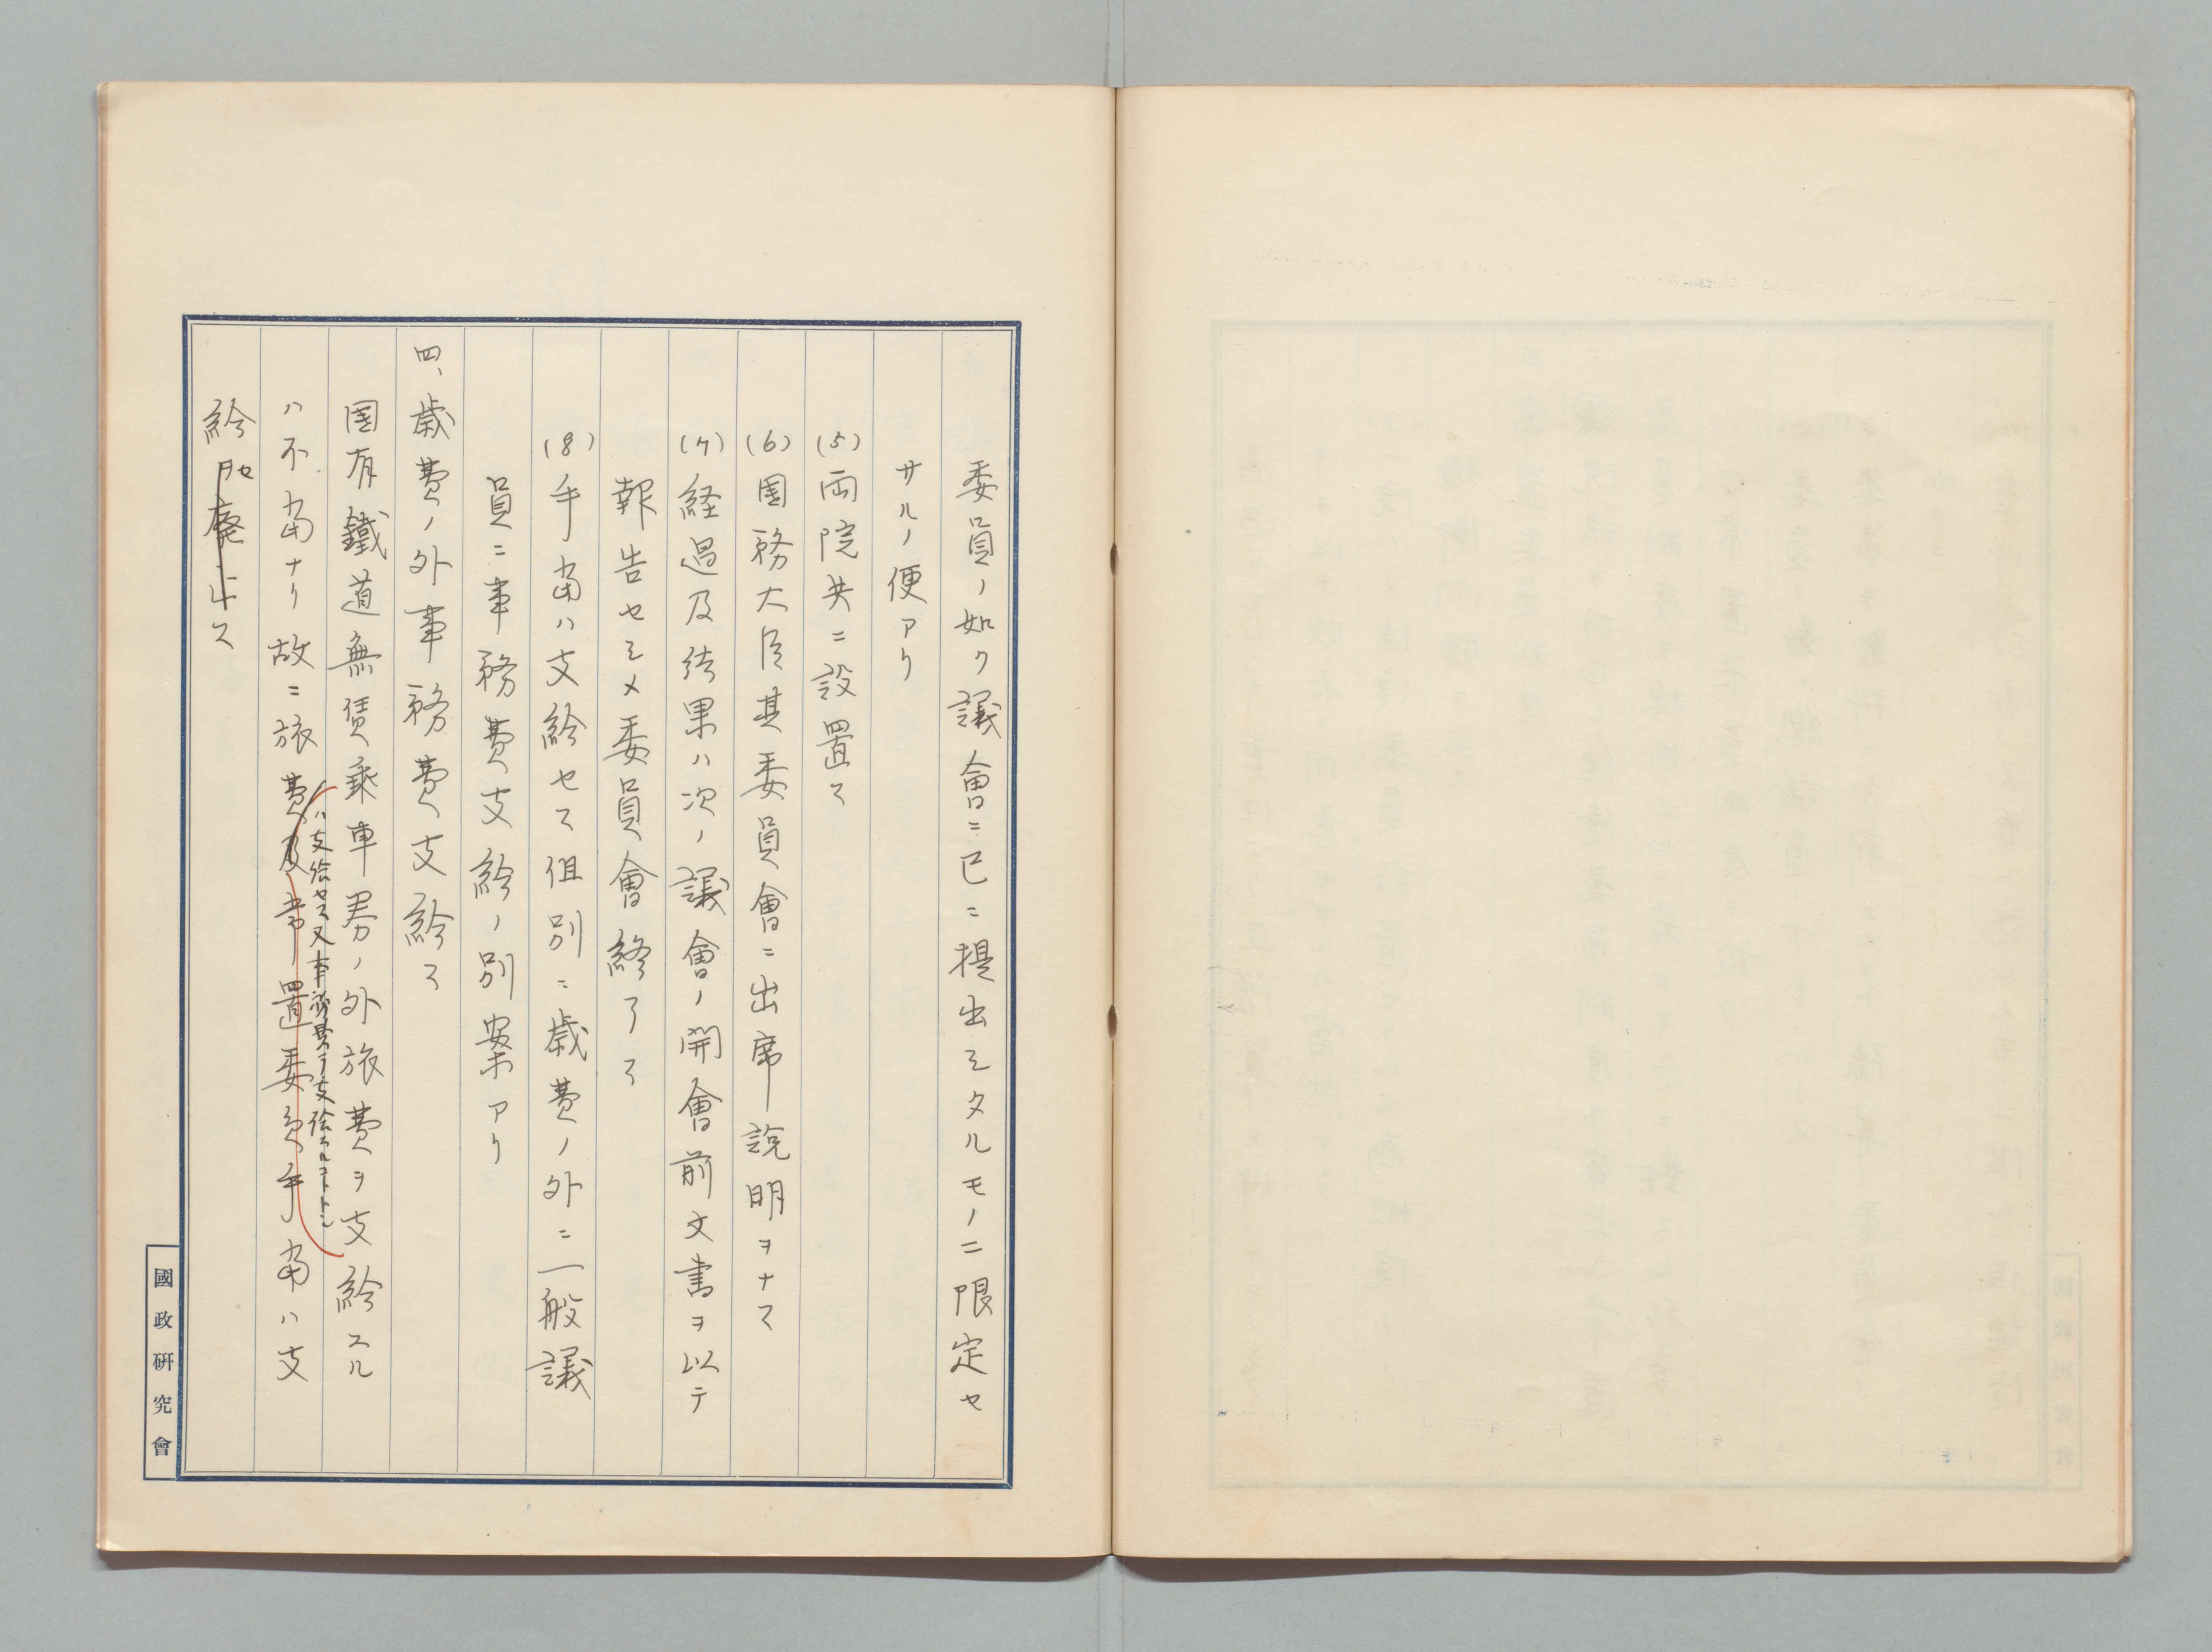 委員ノ如ク議會ニ已ニ提出シタルモノニ限定セ
サルノ便アリ
(5)両院共ニ設置ス
(6)国務大臣其委員會ニ出席説明ヲナス
(7)経過及結果ハ次ノ議會ノ開會前文書ヲ以テ
報告セシメ委員會終了ス
(8)手当ハ支給セス但別ニ歳費ノ外ニ一般議
員ニ事務費支給ノ別案アリ
四、歳費ノ外事務費支給ス
国有鐵道無賃乗車券ノ外旅費ヲ支給スル
ハ支給セス又事務費ヲ支給スルコトトシ
ハ不当ナリ故ニ旅費及常置委員手当ハ支
給セ廃止ス
國政研究會